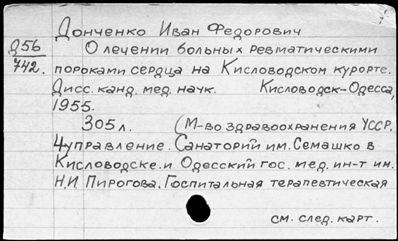 7
Донченко Иван Федорович
Д56
742.
О лечении больных ревматическими
пороками сердца на Кисловодском курорте.
Дисс. канд. мед. наук. Кисловодск-Одесса,
1955.
305 л. (М-во здравоохранения УССР.
4 управление. Санаторий им. Семашко в
Кисловодске. и Одесский гос. мед. ин-т им.
Н.И Пирогова. Госпитальная терапевтическая
см. след. карт.